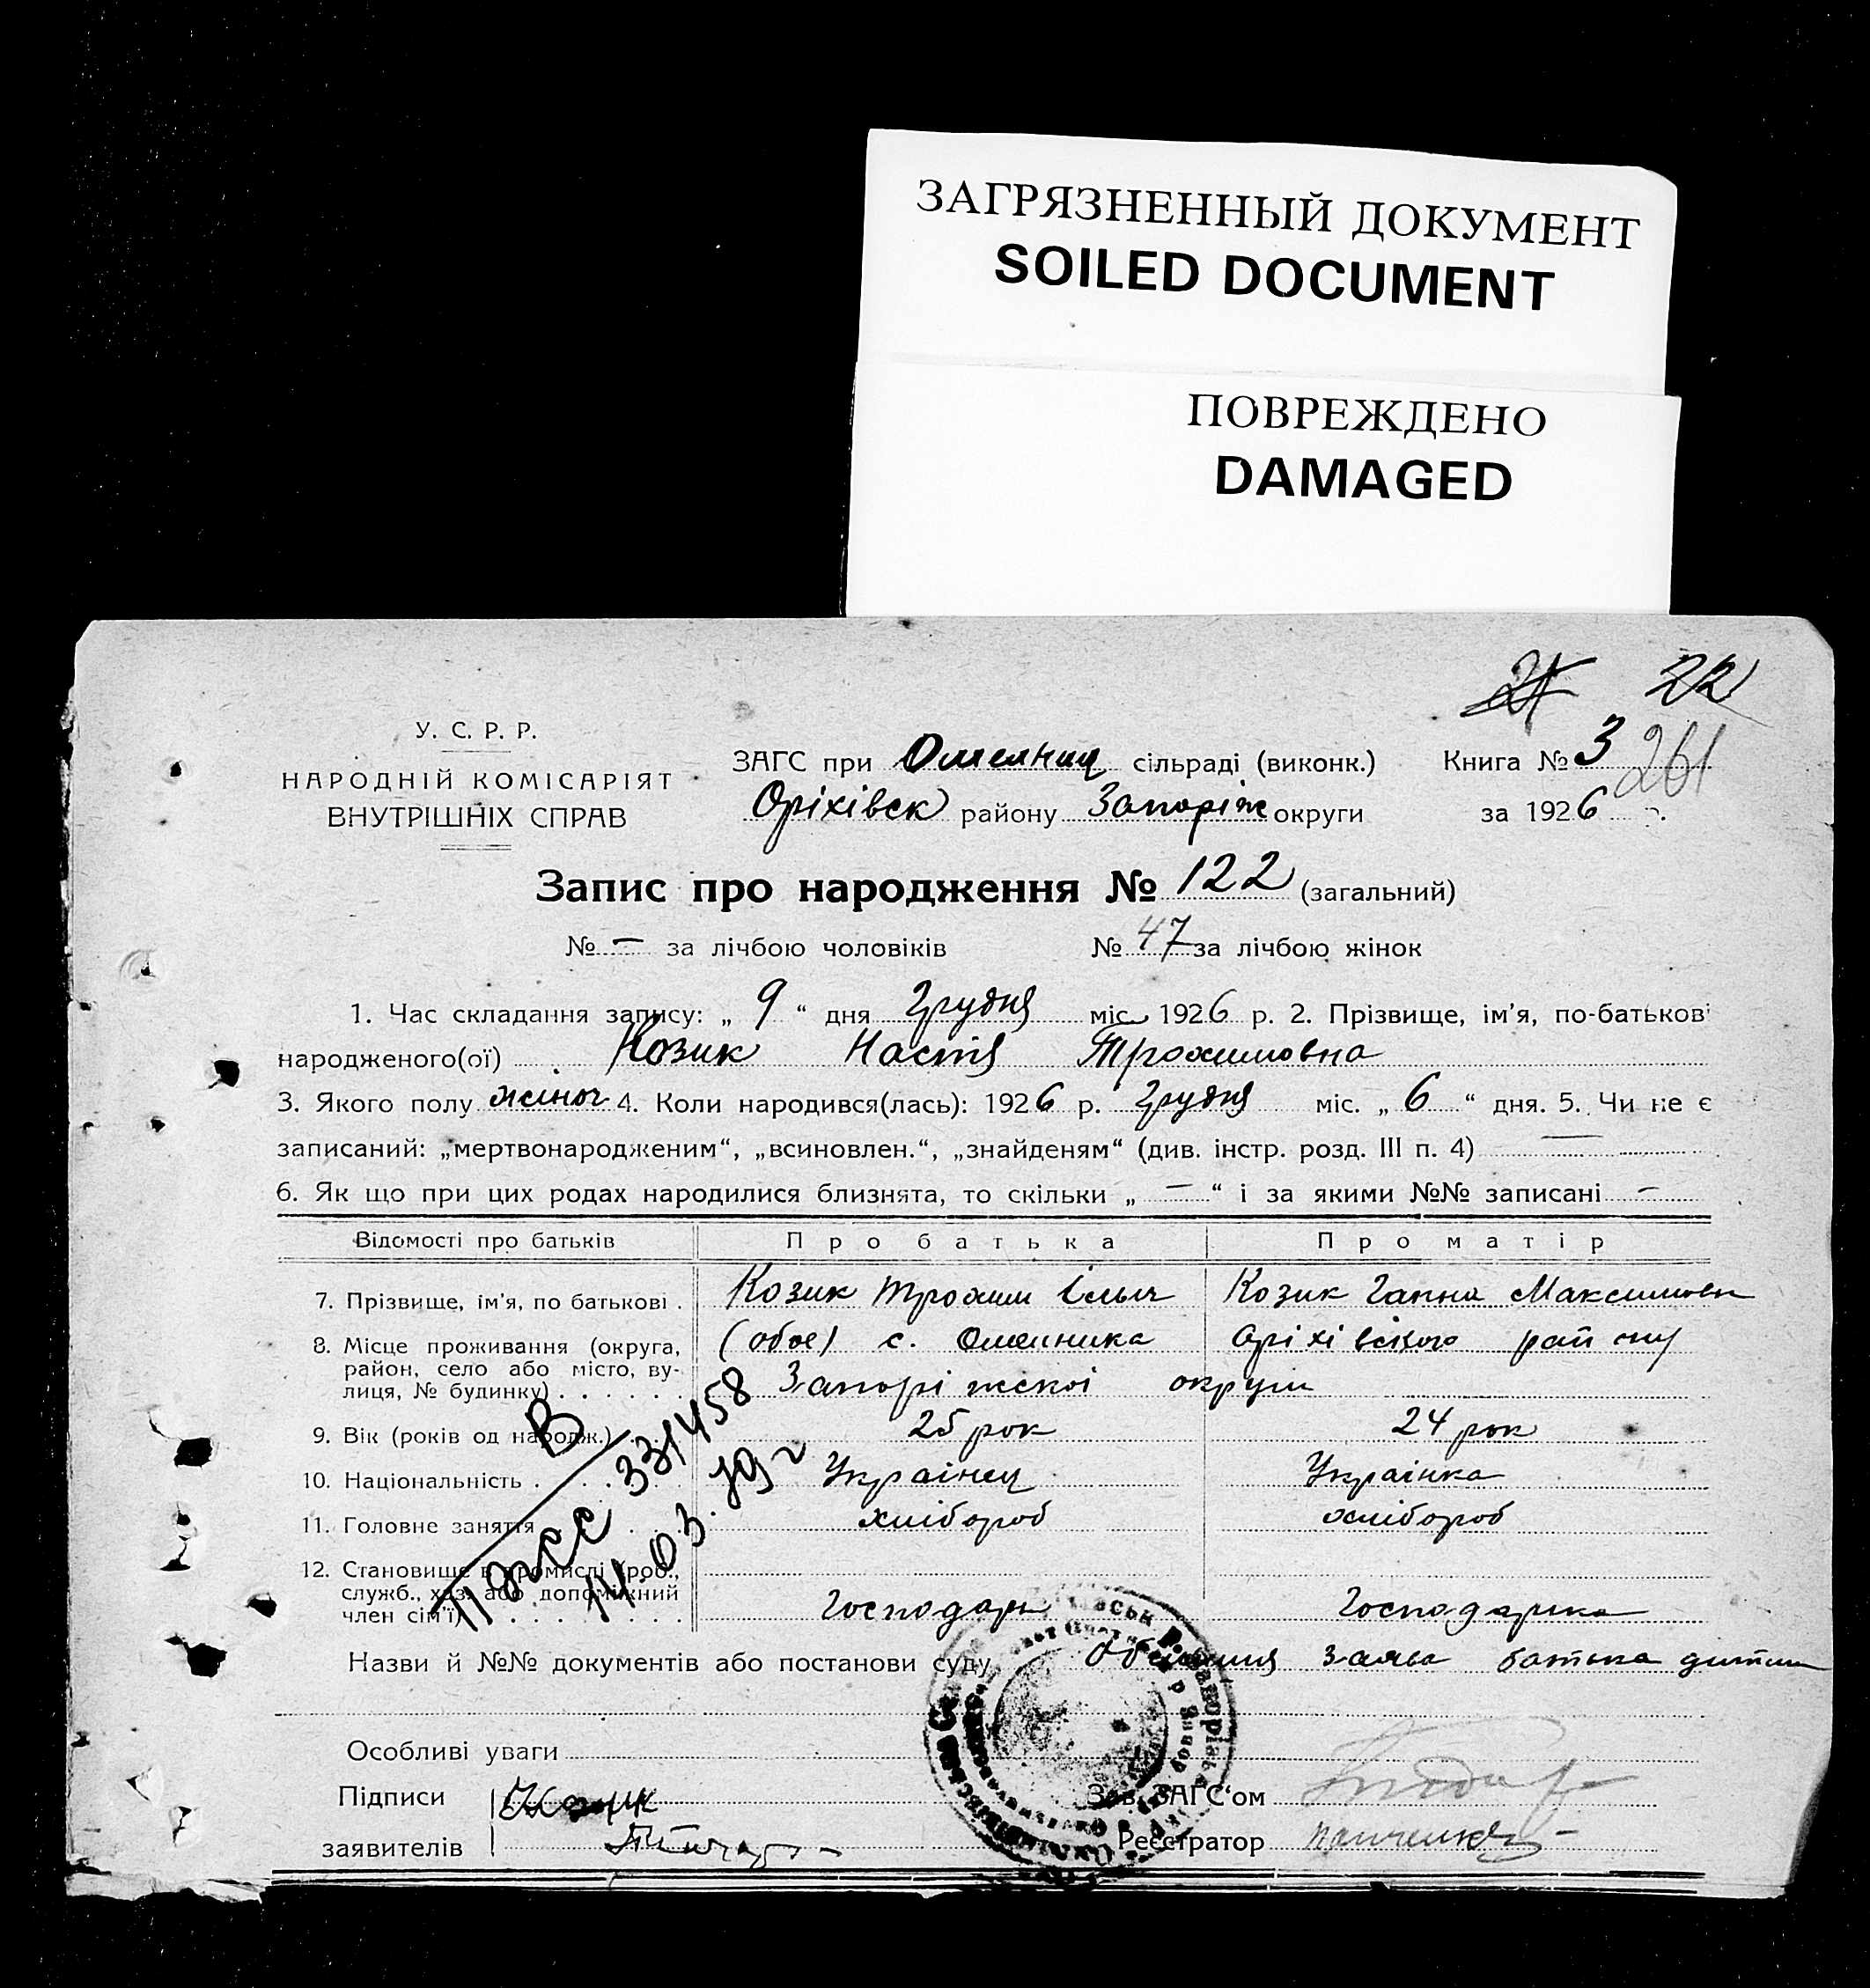 ЗАГРЯЗНЕННЫЙ ДОКУМЕНТ
SOILED DOCUMENT
ПОВРЕЖДЕНО
DAMAGED
21 22
У. С. Р. Р.
НАРОДНІЙ КОМІСАРІЯТ
ВНУТРІШНІХ СПРАВ
ЗАГС при Омелниц сільраді (виконк.) Книга № 3 261
Оріхівск району Запоріж округи за 1926 р.
Запис про народження № 122 (загальний)
№ – за лічбою чоловіків № 47 за лічбою жінок
1. Час складання запису: „ 9 “ дня Грудня міс. 1926 р. 2. Прізвище, ім'я, по-батькові
народженого(ої) Козик Настя Трохимовна
3. Якого полу жіноч 4. Коли народився(лась): 1926 р. Грудня міс. „ 6 “ дня. 5. Чи не є
записаний: „мертвонародженим“, „всиновлен.“, „знайденям“ (див. інстр. розд. III п. 4) —
6. Як що при цих родах народилися близнята, то скільки „ – “ і за якими №№ записані –
Відомості про батьків Про батька Про матір
7. Прізвище, ім'я, по батькові . Козик Трохим Ільич Козик Ганна Максимовн
8. Місце проживання (округа, (обое) с. Омелника Оріхівского району
район, село або місто, ву-
лиця, № будинку) . . . . . . Запоріжскоі округи
9. Вік (років од народж.) . . 25 рок 24 рок
10. Національність . . . . . Украінец Украінка
11. Головне заняття . . . хлібороб хлібороб
12. Становище в промислі (роб.,
служб., хаз. або допоміжний
член сім'ї) . . . . . . . . Господар Господарка
В
Пасс 331458
14.03.79 г
Назви й №№ документів або постанови суду заява батька дитини
Особливі уваги
Підписи Козик Зав. ЗАГС'ом
заявителів Реєстратор Панченко